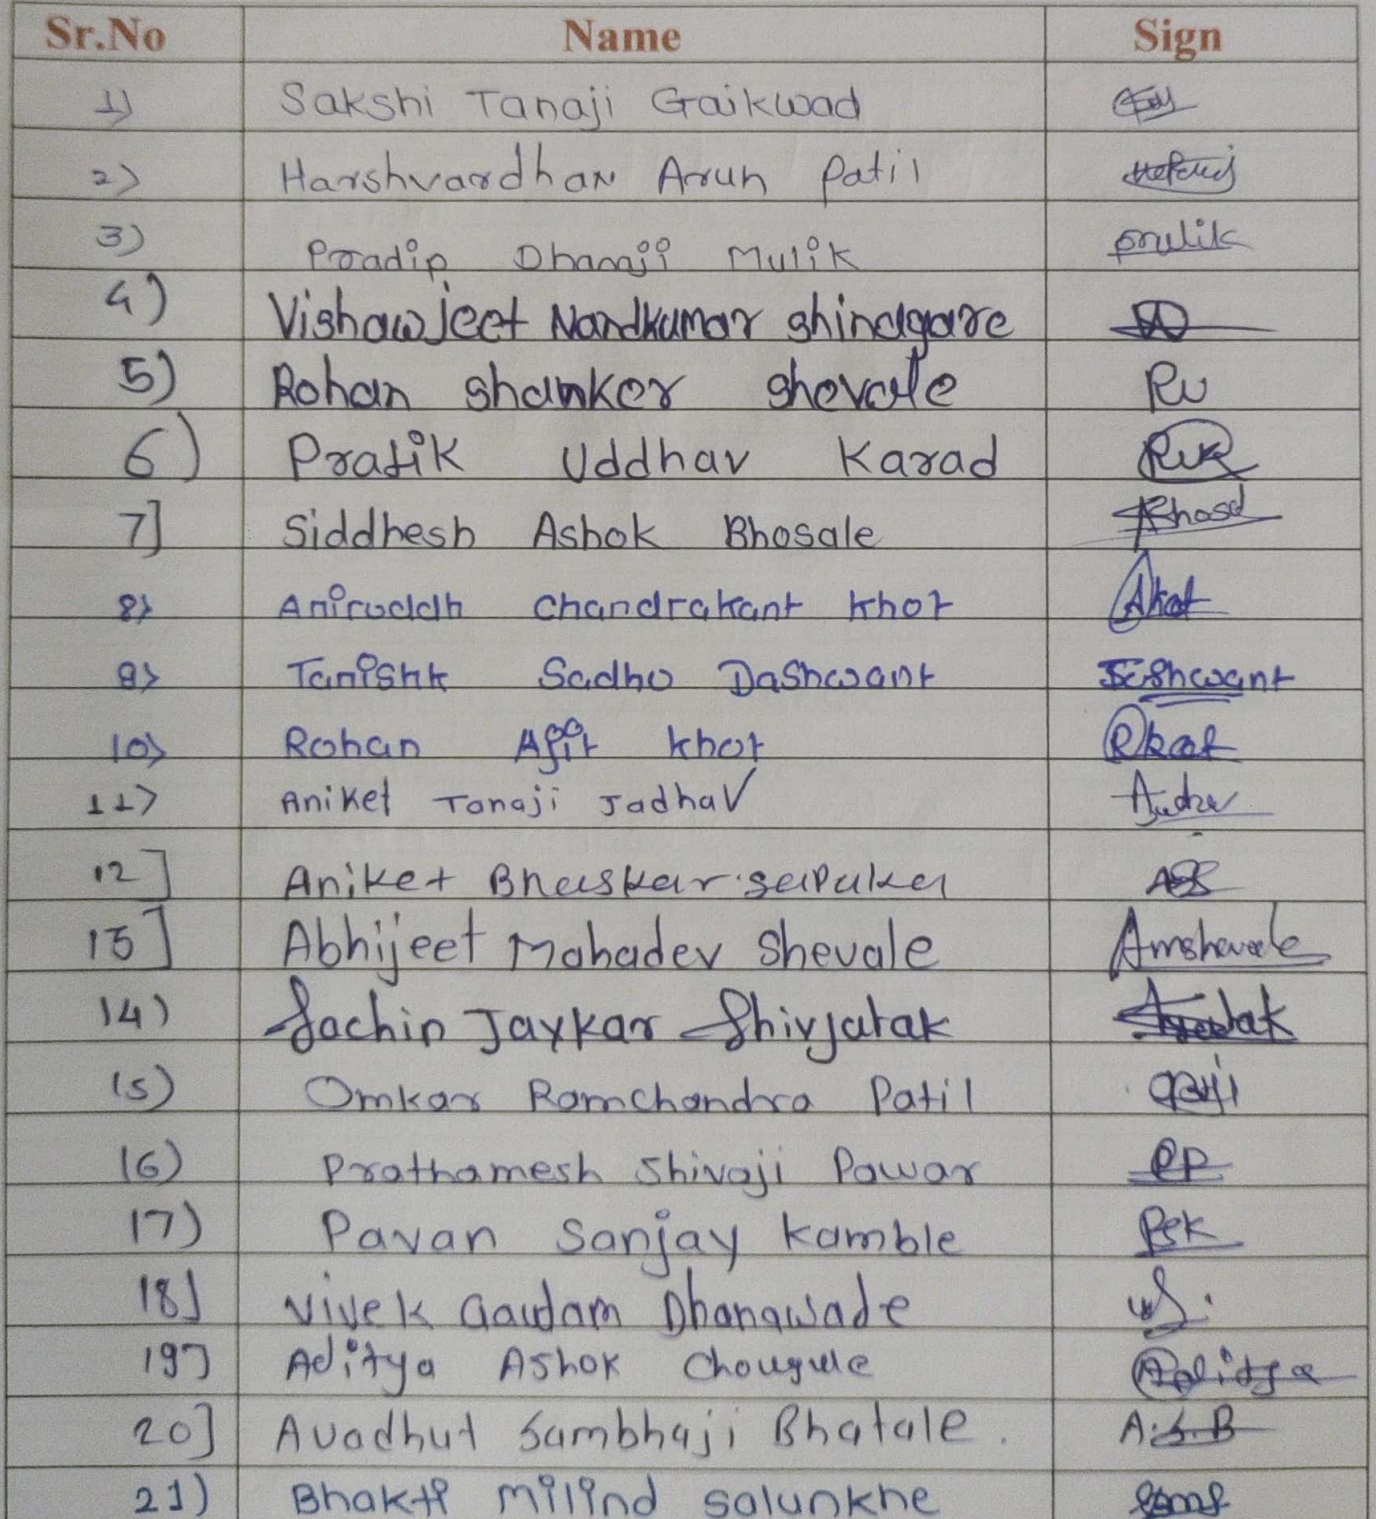 Sr.No Name Sign
1) Sakshi Tanaji Gaikwad
2) Harshvardhan Arun Patil
3) Pradip Dhanaji Mulik mulik
4) Vishawjeet Nandkumar shindgare
5) Rohan shanker shevale Ru
6) Pratik Uddhav Karad RUK
7] Siddhesh Ashok Bhosale
8) Aniruddh chandrakant khot Akhot
9) Tanishk Sadhu Dashwant Dashwant
10) Rohan Ajit khot Rkhot
11) Aniket Tanaji Jadhav
12] Aniket Bhaskar
13] Abhijeet Mahadev Shevale Amshevale
14) Sachin Jaykar Shivjatak
15) Omkar Ramchandra Patil
16) Prathamesh Shivaji Pawar PP
17) Pavan Sanjay Kamble PSK
18] Vivek Gautam Dhanawade
19] Aditya Ashok Chougule Aditya
20] Avadhut Sambhaji Bhatale. A.S.B
21) Bhakti Milind salunkhe